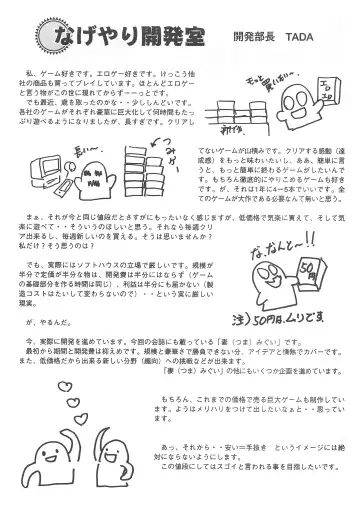 なげやり開発室
開発部長　TADA
私、ゲーム好きです。エロゲー好きです。けっこう他
社の商品も買ってプレイしています。ほとんどエロゲー
と言う物がこの世に現れてからずーーっとです。
でも最近、歳を取ったのかな・・少ししんどいです。
各社のゲームがそれぞれ豪華に巨大化して何時間もたっ
ぷり遊べるようになりましたが、長すぎです。クリアし
もっと買いたい〜
エロ
新作
長い〜
つみがー
てないゲームが山積みです。クリアする感動（達
成感）をもっと味わいたいし、ああ、簡単に言
うと、もっと簡単に終わるゲームがしたいんで
す。もちろん徹底的にやりこめるゲームも好き
です。が、それは1年に4〜5本でいいです。全
てのゲームが大作である必要なんて無いと思う。
まぁ、それが今と同じ値段だとさすがにもったいなく感じますが、低価格で気楽に買えて、そして気
楽に遊べて・・そういうのほしいと思う。それなら毎週クリ
ア出来るし、毎週新しいのを買える。そうは思いませんか？
私だけ？そう思うのは？
な、なんと〜!!
50円
注）50円は、ムリです
でも、実際にはソフトハウスの立場で厳しいです。規模が
半分で定価が半分な物は、開発費は半分にはならず（ゲーム
の基礎部分を作る時間は同じ）、利益は半分にも届かない（製
造コストはたいして変わらないので）・・という実に厳しい
現実。
が、やるんだ。
今、実際に開発を進めています。今回の会誌にも載っている「妻（つま）みぐい」です。
最初から期間と開発費は抑えめです。規模と豪華さで勝負できない分、アイデアと情熱でカバーです。
また、低価格だから出来る新しい分野（趣向）への挑戦などが出来ます。
「妻（つま）みぐい」の他にもいくつか企画を進めています。
もちろん、これまでの価格で売る巨大ゲームも制作してい
ます。ようはメリハリをつけて出したいなぁと・・思ってい
ます。
あっ、それから・・安い＝手抜き　というイメージには絶
対にならないようにします。
この値段にしてはスゴイと言われる事を目指したいです。